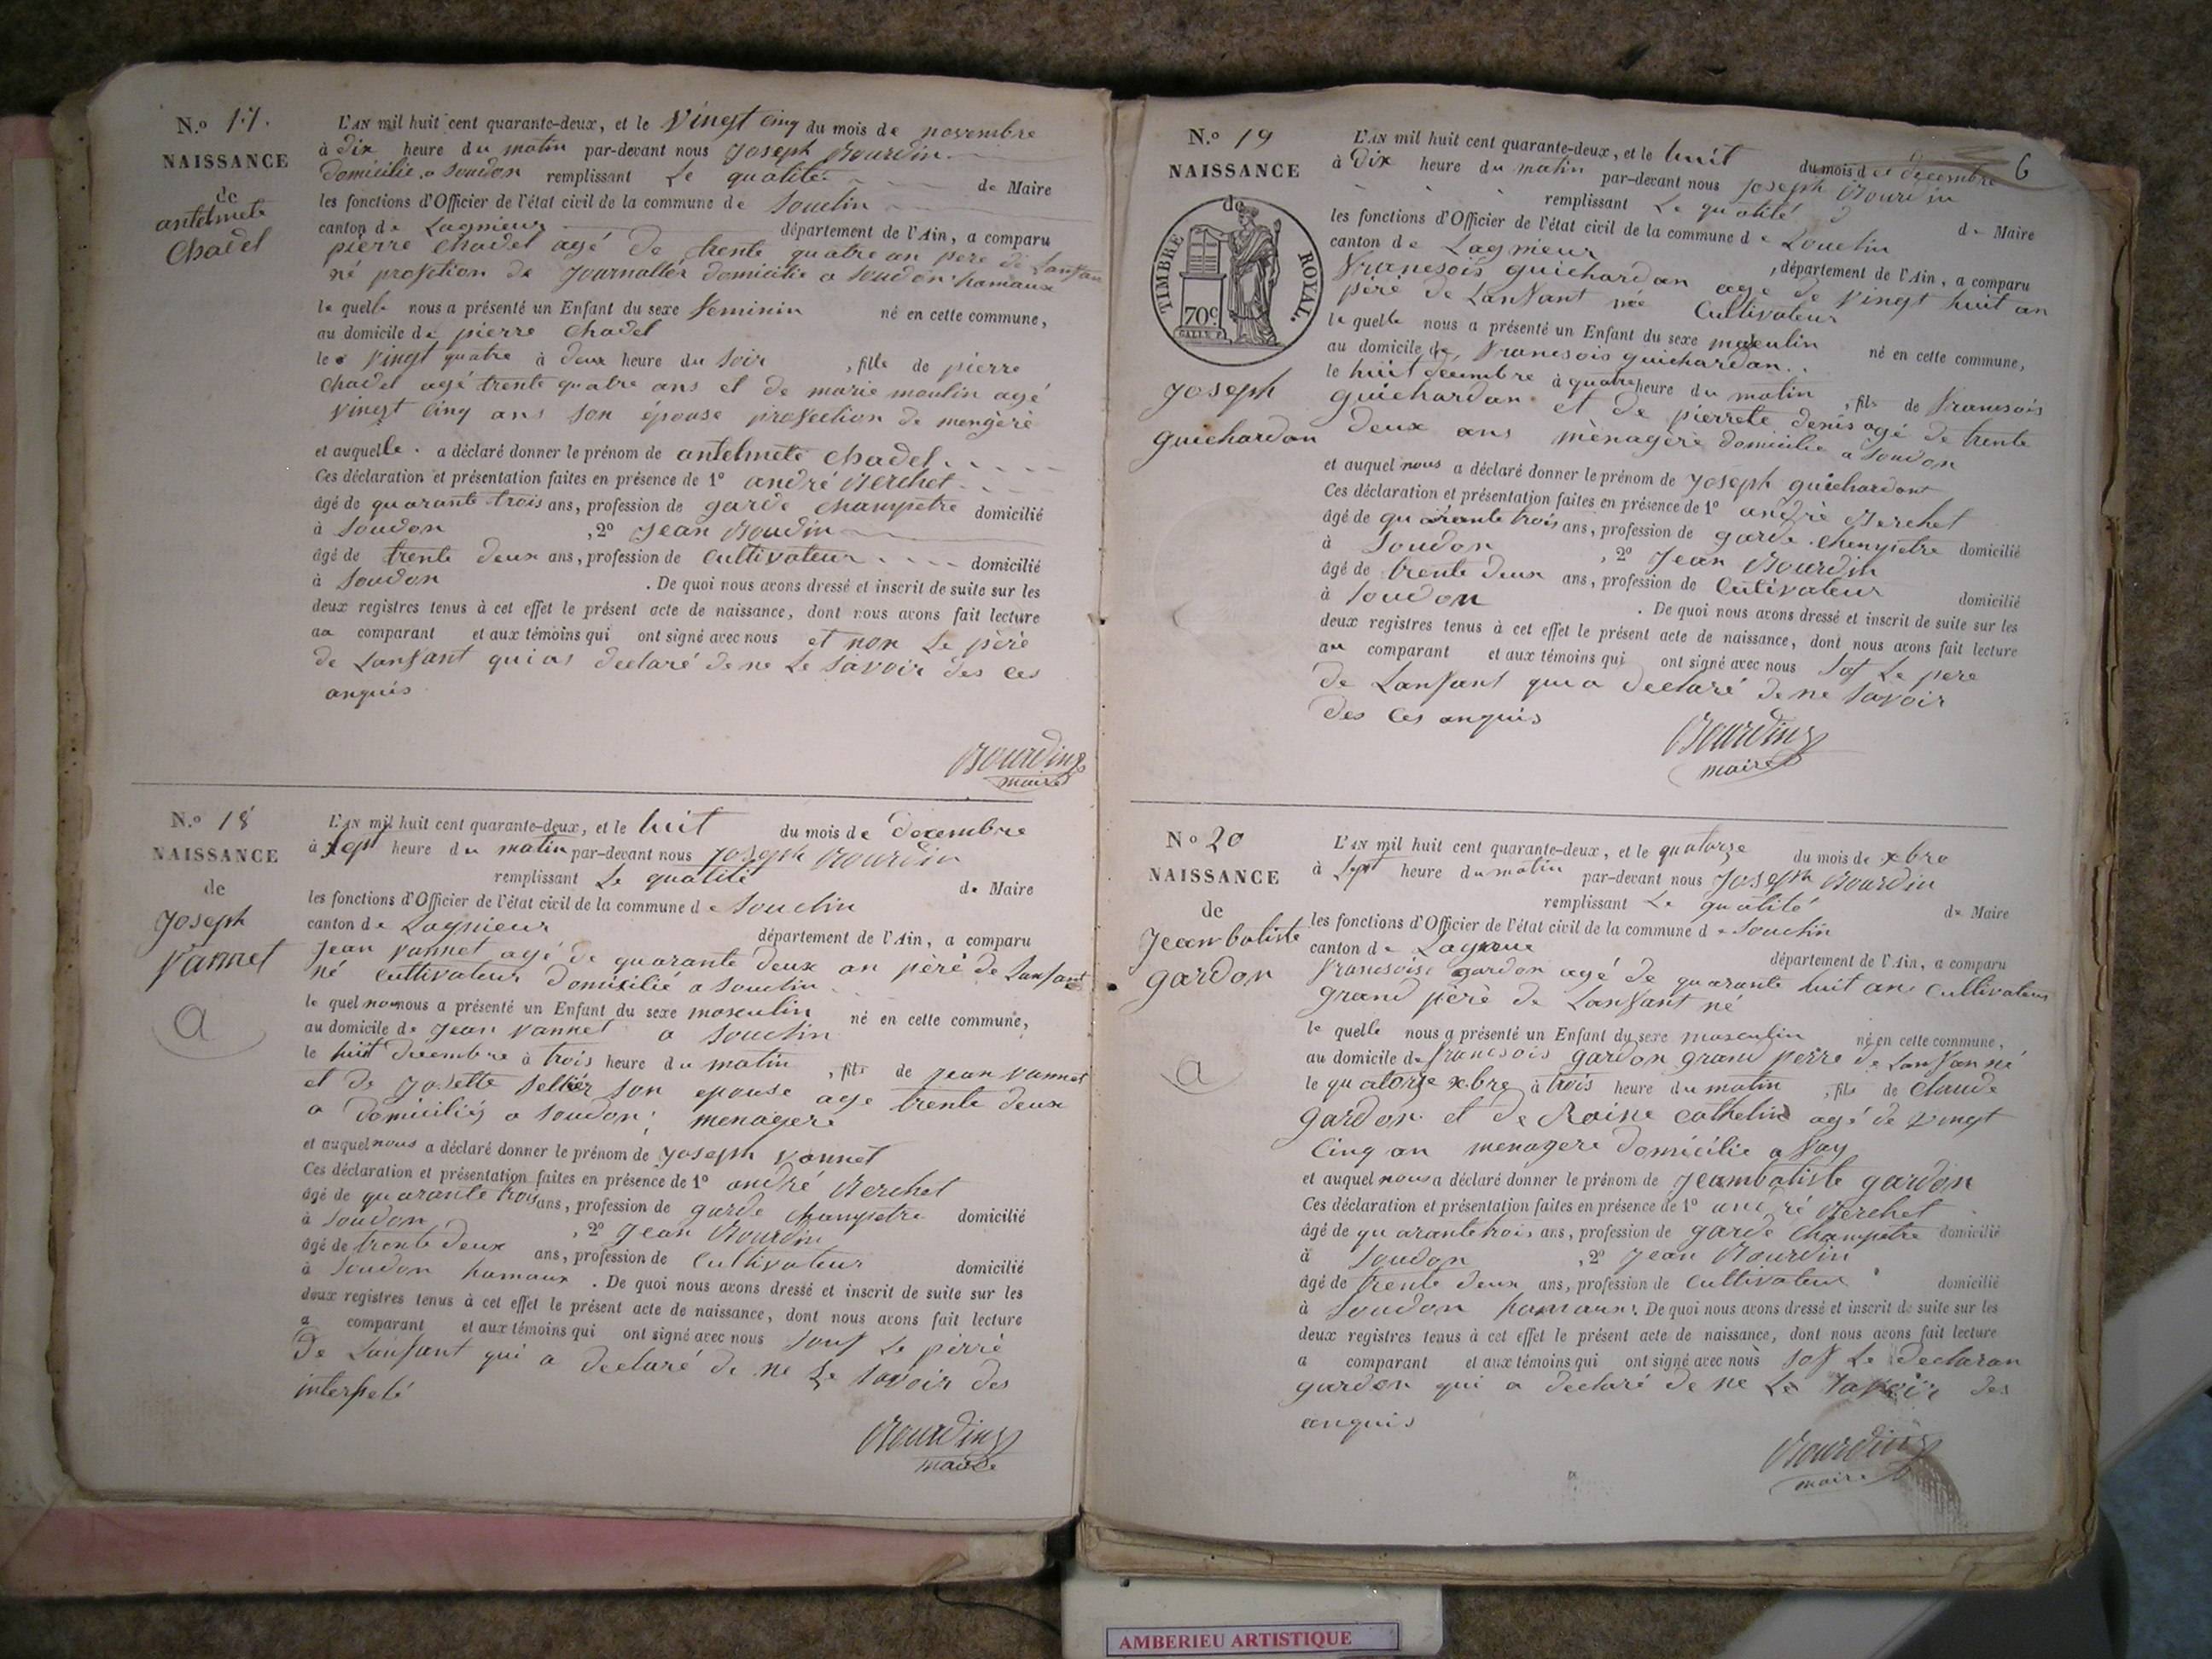 N.o 17.
NAISSANCE
de
antelmete
Chadel
L'AN mil huit cent quarante-deux, et le Vingt cinq du mois de novembre
à dix heure du matin par-devant nous Joseph Bourdin
Domicilie a Soudon remplissant Le qualité de Maire
les fonctions d'Officier de l'état civil de la commune de Souclin
canton de Lagnieur département de l'Ain, a comparu
pierre Chadel agé de trente quatre an pere de Lanfan
né profection de Journallier domicilie a Soudon hamaux
le quelle nous a présenté un Enfant du sexe Feminin né en cette commune,
au domicile de pierre Chadel
le vingt quatre à deux heure du Soir, fille de pierre
Chadel agé trente quatre ans et de marie moulin agé
vingt cinq ans son épouse profection de mengèrè
et auquelle a déclaré donner le prénom de antelmete Chadel
Ces déclaration et présentation faites en présence de 1o andré Berchet
âgé de quarante trois ans, profession de garde champetre domicilié
à Soudon, 2o Jean Boudin
âgé de trente deux ans, profession de Cultivateur domicilié
à Soudon. De quoi nous avons dressé et inscrit de suite sur les
deux registres tenus à cet effet le présent acte de naissance, dont nous avons fait lecture
au comparant et aux témoins qui ont signé avec nous et non Le père
de Lanfant qui as declaré de ne Le Savoir des ces
anquis
Bourdin
maire
N.o 18
NAISSANCE
de
Joseph
Vannet
a
L'AN mil huit cent quarante-deux, et le huit du mois de decembre
à Sept heure du matin par-devant nous Joseph Bourdin
remplissant Le qualité de Maire
les fonctions d'Officier de l'état civil de la commune de Souclin
canton de Lagnieur département de l'Ain, a comparu
Jean Vannet agé de quarante deux an pèrè de Lanfant
né Cultivateur Domicilié a Souclin
le quel nous a présenté un Enfant du sexe masculin né en cette commune,
au domicile de Jean Vannet a Souclin
le huit decembre à trois heure du matin, fils de Jean Vannet
et de Josette Sellier Son epouse age trente deux
a domiciliés a Soudon; menagere
et auquel nous a déclaré donner le prénom de Joseph Vannet
Ces déclaration et présentation faites en présence de 1o andré Berchet
âgé de quarante trois ans, profession de garde champetre domicilié
à Soudon, 2o Jean Bourdin
âgé de trente deux ans, profession de Cultivateur domicilié
à Soudon hamaux. De quoi nous avons dressé et inscrit de suite sur les
deux registres tenus à cet effet le présent acte de naissance, dont nous avons fait lecture
a comparant et aux témoins qui ont signé avec nous Souf Le pèrrè
De Lanfant qui a declaré de ne Le Savoir des
interpelé
Bourdin
maire
6
N.o 19
NAISSANCE
de
TIMBRE ROYAL.
70c
Joseph
guichardon
L'AN mil huit cent quarante-deux, et le huit du mois de decembre
à Dix heure du matin par-devant nous Joseph Bourdin
remplissant Le qualité de Maire
les fonctions d'Officier de l'état civil de la commune de Souclin
canton de Lagnieur, département de l'Ain, a comparu
Francsois guichardan age de vingt huit an
père de Lanfant née Cultivateur
le quelle nous a présenté un Enfant du sexe masculin né en cette commune,
au domicile de Francsois guichardan
le huit decembre à quatre heure du matin, fils de Francsois
guichardan et de pierrete denis agé de trente
deux ans mènagèrè domicilie a Soudon
et auquel nous a déclaré donner le prénom de Joseph guichardont
Ces déclaration et présentation faites en présence de 1o andrè Berchet
âgé de quarante trois ans, profession de garde champetre domicilié
à Soudon, 2o Jean Bourdin
âgé de trente deux ans, profession de Cultivateur domicilié
à Soudon. De quoi nous avons dressé et inscrit de suite sur les
deux registres tenus à cet effet le présent acte de naissance, dont nous avons fait lecture
au comparant et aux témoins qui ont signé avec nous Sof Le pere
de Lanfant qui a declaré de ne Savoir
des Ces anquis
Bourdin
maire
No 20
NAISSANCE
de
Jeambatiste
gardon
a
L'AN mil huit cent quarante-deux, et le quatorze du mois de xbre
à Sept heure du matin par-devant nous Joseph Bourdin
remplissant Le qualité de Maire
les fonctions d'Officier de l'état civil de la commune de Souclin
canton de département de l'Ain, a comparu
Francsoise gardon agé de quarante huit ans Cultivateur
grand pèrè de Lanfant né
le quelle nous a présenté un Enfant du sexe masculin né en cette commune,
au domicile de francsois gardon grand perre de Lanfan né
le quatorze xbre à trois heure du matin, fils de Claude
gardon et de Raine Cathelin agé de vingt
Cinq an menagere domicilie a Fay
et auquel nous a déclaré donner le prénom de Jeambatiste gardon
Ces déclaration et présentation faites en présence de 1o andré Berchet
âgé de quarante trois ans, profession de garde Champetre domicilié
à Soudon, 2o Jean Bourdin
âgé de trente deux ans, profession de Cultivateur domicilié
à Soudon hamaux. De quoi nous avons dressé et inscrit de suite sur les
deux registres tenus à cet effet le présent acte de naissance, dont nous avons fait lecture
a comparant et aux témoins qui ont signé avec nous Sof Le declaran
gardon qui a declaré de ne Le Savoir des
anquis
Bourdin
maire
AMBERIEU ARTISTIQUE